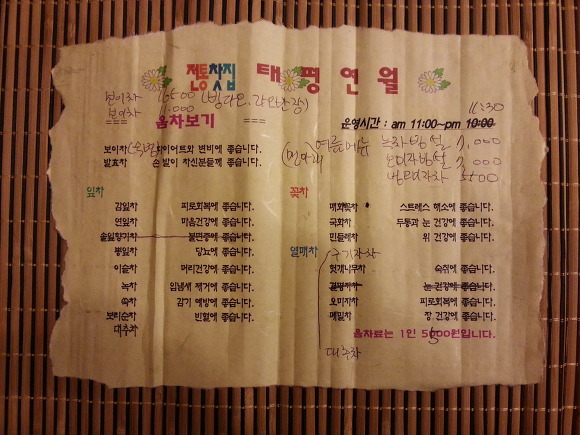 전통찻집 태평연월
보이차 6500
보이차 11,000
=== 음차보기 ===
운영시간 : am 11:00~pm 10:00
11:30
보이차 다이어트와 변비에 좋습니다.
발효차 손발이 차신분들께 좋습니다.
여름메뉴 녹차빙설 7,000
오미자빙설 7,000
냉오미자차 5500
잎차
감잎차 피로회복에 좋습니다.
연잎차 마음건강에 좋습니다.
솔잎향기차 불면증에 좋습니다.
뽕잎차 당뇨에 좋습니다.
이슬차 머리건강에 좋습니다.
녹차 입냄새 제거에 좋습니다.
쑥차 감기 예방에 좋습니다.
보리순차 빈혈에 좋습니다.
대추차
꽃차
매화꽃차 스트레스 해소에 좋습니다.
국화차 두통과 눈 건강에 좋습니다.
민들레차 위 건강에 좋습니다.
열매차 구기자차
헛개나무차 숙취에 좋습니다.
결명자차 눈 건강에 좋습니다.
오미자차 피로회복에 좋습니다.
메밀차 장 건강에 좋습니다.
음차료는 1인 5500원입니다.
대추차